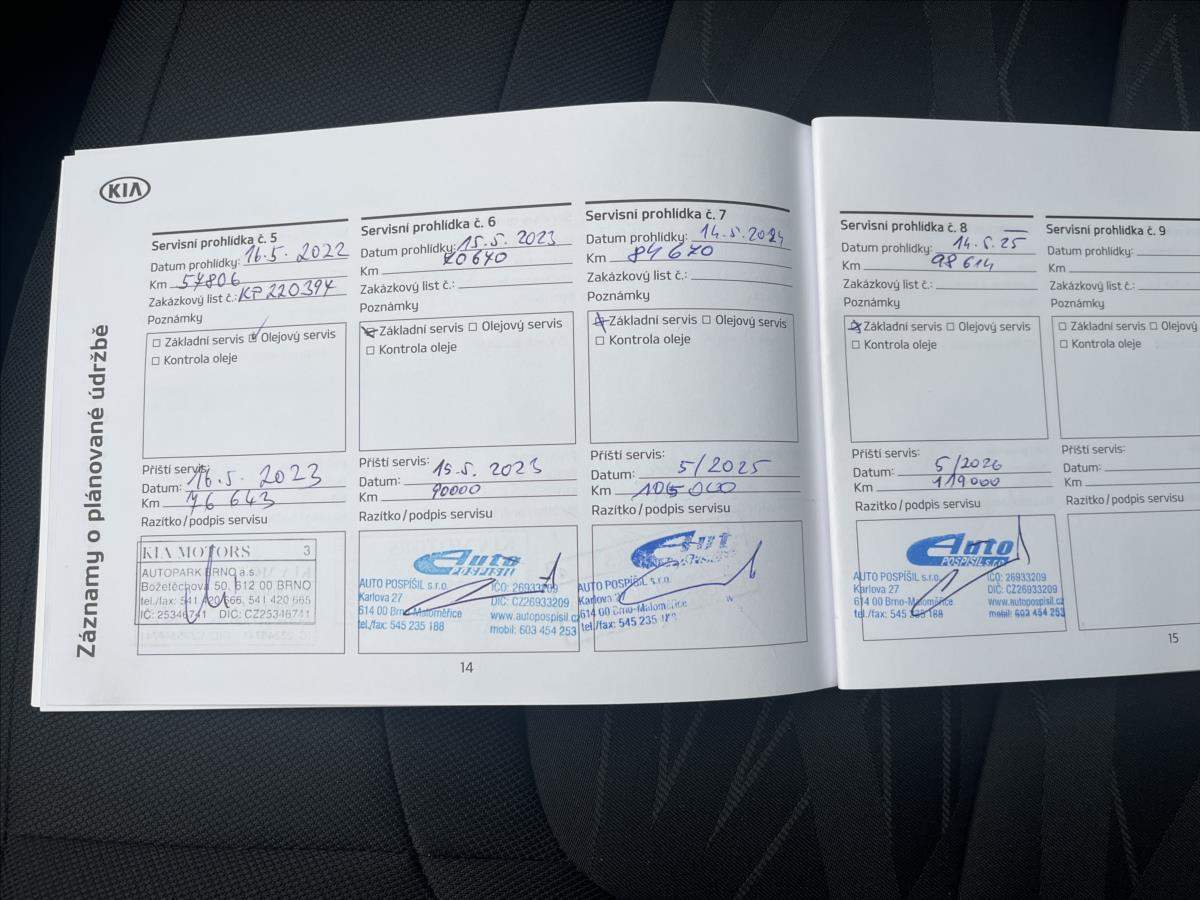 KIA
Záznamy o plánované údržbě
Servisní prohlídka č. 5
Datum prohlídky: 16.5. 2022
Km 57806
Zakázkový list č.: KP220394
Poznámky
Základní servis Olejový servis
Kontrola oleje
Příští servis:
Datum: 16.5. 2023
Km 76 643
Razítko/podpis servisu
KIA MOTORS 3
AUTOPARK BRNO a.s.
Božetěchova 50, 612 00 BRNO
tel./fax: 541 420 666, 541 420 665
IČ: 25346741 DIČ: CZ25346741
Servisní prohlídka č. 6
Datum prohlídky: 15.5. 2023
Km 70670
Zakázkový list č.:
Poznámky
Základní servis Olejový servis
Kontrola oleje
Příští servis:
Datum: 15.5. 2023
Km 90000
Razítko/podpis servisu
Auto
POSPÍŠIL
AUTO POSPÍŠIL s.r.o.
Karlova 27
614 00 Brno-Maloměřice
tel./fax: 545 235 188
IČO: 26933209
DIČ: CZ26933209
www.autopospisil.cz
mobil: 603 454 253
Servisní prohlídka č. 7
Datum prohlídky: 14.5.2024
Km 84670
Zakázkový list č.:
Poznámky
Základní servis Olejový servis
Kontrola oleje
Příští servis:
Datum: 5/2025
Km 105000
Razítko/podpis servisu
AUTO POSPÍŠIL s.r.o.
Karlova 27
614 00 Brno-Maloměřice
tel./fax: 545 235
14
Servisní prohlídka č. 8
Datum prohlídky: 14.5.25
Km 98614
Zakázkový list č.:
Poznámky
Základní servis Olejový servis
Kontrola oleje
Příští servis:
Datum: 5/2026
Km 119000
Razítko/podpis servisu
Auto
POSPÍŠIL s.r.o.
AUTO POSPÍŠIL s.r.o.
Karlova 27
614 00 Brno-Maloměřice
tel./fax: 545 235 188
IČO: 26933209
DIČ: CZ26933209
www.autopospisil.cz
mobil: 603 454 253
Servisní prohlídka č. 9
Datum prohlídky:
Km
Zakázkový list č.:
Poznámky
Základní servis Olejový
Kontrola oleje
Příští servis:
Datum:
Km
Razítko/podpis servisu
15